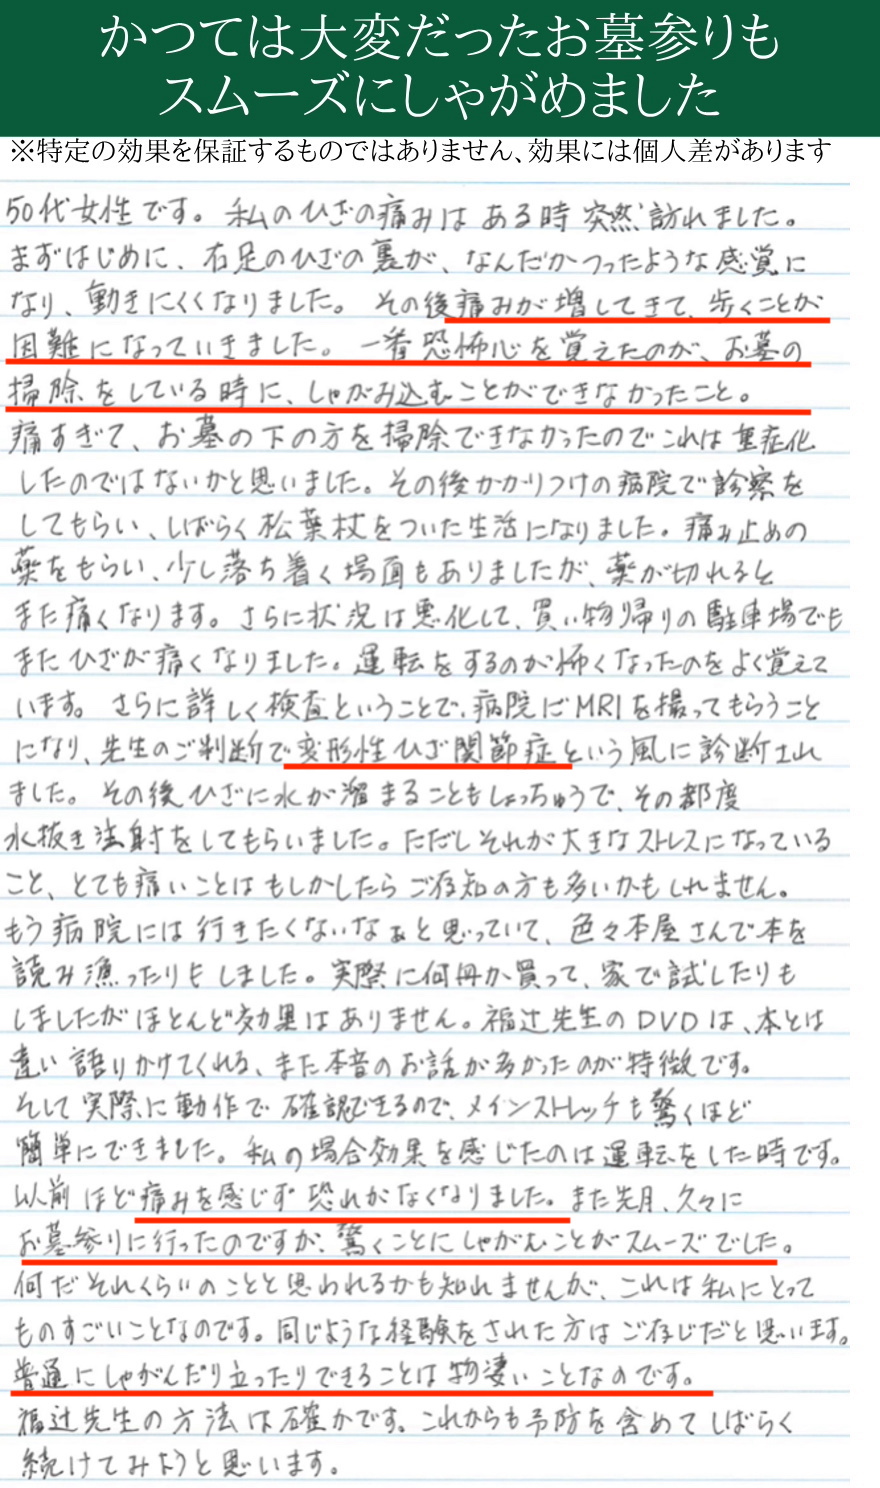 かつては大変だったお墓参りも
スムーズにしゃがめました
※特定の効果を保証するものではありません、効果には個人差があります
50代女性です。私のひざの痛みはある時突然訪れました。
まずはじめに、右足のひざの裏が、なんだかつったような感覚に
なり、動きにくくなりました。その後痛みが増してきて、歩くことが
困難になっていきました。一番恐怖心を覚えたのが、お墓の
掃除をしている時に、しゃがみ込むことができなかったこと。
痛すぎて、お墓の下の方を掃除できなかったのでこれは重症化
したのではないかと思いました。その後かかりつけの病院で診察を
してもらい、しばらく松葉杖をついた生活になりました。痛み止めの
薬をもらい、少し落ち着く場面もありましたが、薬が切れると
また痛くなります。さらに状況は悪化して、買い物帰りの駐車場でも
またひざが痛くなりました。運転をするのが怖くなったのをよく覚えて
います。さらに詳しく検査ということで、病院にMRIを撮ってもらうこと
になり、先生のご判断で変形性ひざ関節症という風に診断され
ました。その後ひざに水が溜まることもしょっちゅうで、その都度
水抜き注射をしてもらいました。ただしそれが大きなストレスになっている
こと、とても痛いことはもしかしたらご存知の方も多いかもしれません。
もう病院には行きたくないなぁと思っていて、色々本屋さんで本を
読み漁ったりもしました。実際に何冊か買って、家で試したりも
しましたがほとんど効果はありません。福辻先生のDVDは、本とは
違い語りかけてくれる、また本音のお話が多かったのが特徴です。
そして実際に動作で確認できるので、メインストレッチも驚くほど
簡単にできました。私の場合効果を感じたのは運転をした時です。
以前ほど痛みを感じず恐れがなくなりました。また先月、久々に
お墓参りに行ったのですが、驚くことにしゃがむことがスムーズでした。
何だそれくらいのことと思われるかも知れませんが、これは私にとって
ものすごいことなのです。同じような経験をされた方はご存じだと思います。
普通にしゃがんだり立ったりできることは物凄いことなのです。
福辻先生の方法は確かです。これからも予防を含めてしばらく
続けてみようと思います。